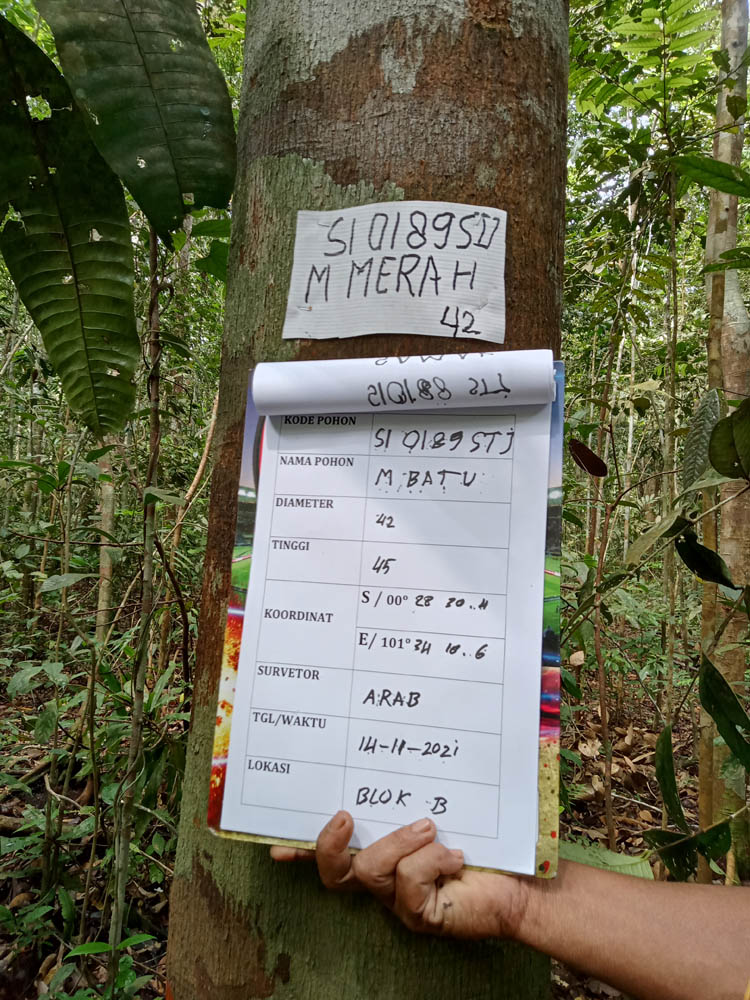 SI 0189STJ
M MERAH
42
KODE POHON SI 0189 STJ
NAMA POHON M BATU
DIAMETER 42
TINGGI 45
KOORDINAT S / 00° 28 30..4
E/ 101° 34 10..6
SURVETOR ARAB
TGL/WAKTU 14-11-2021
LOKASI BLOK B